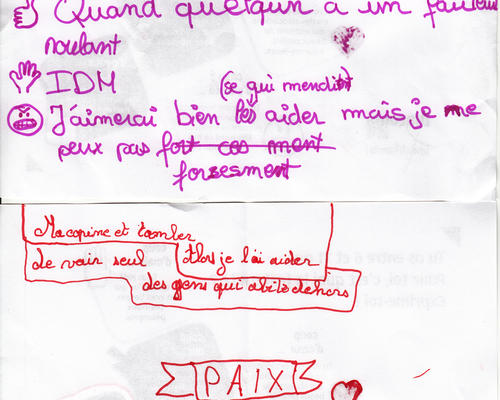 Quand quelqun a un fauteui
roulant
IDM
(se qui mendit)
J'aimerai bien les aider mais je ne
peux pas fort cas ment
forsesment
Ma copine et tomber
de vain seul Alors je l'ai aider
des gens qui abite dehors
PAIX